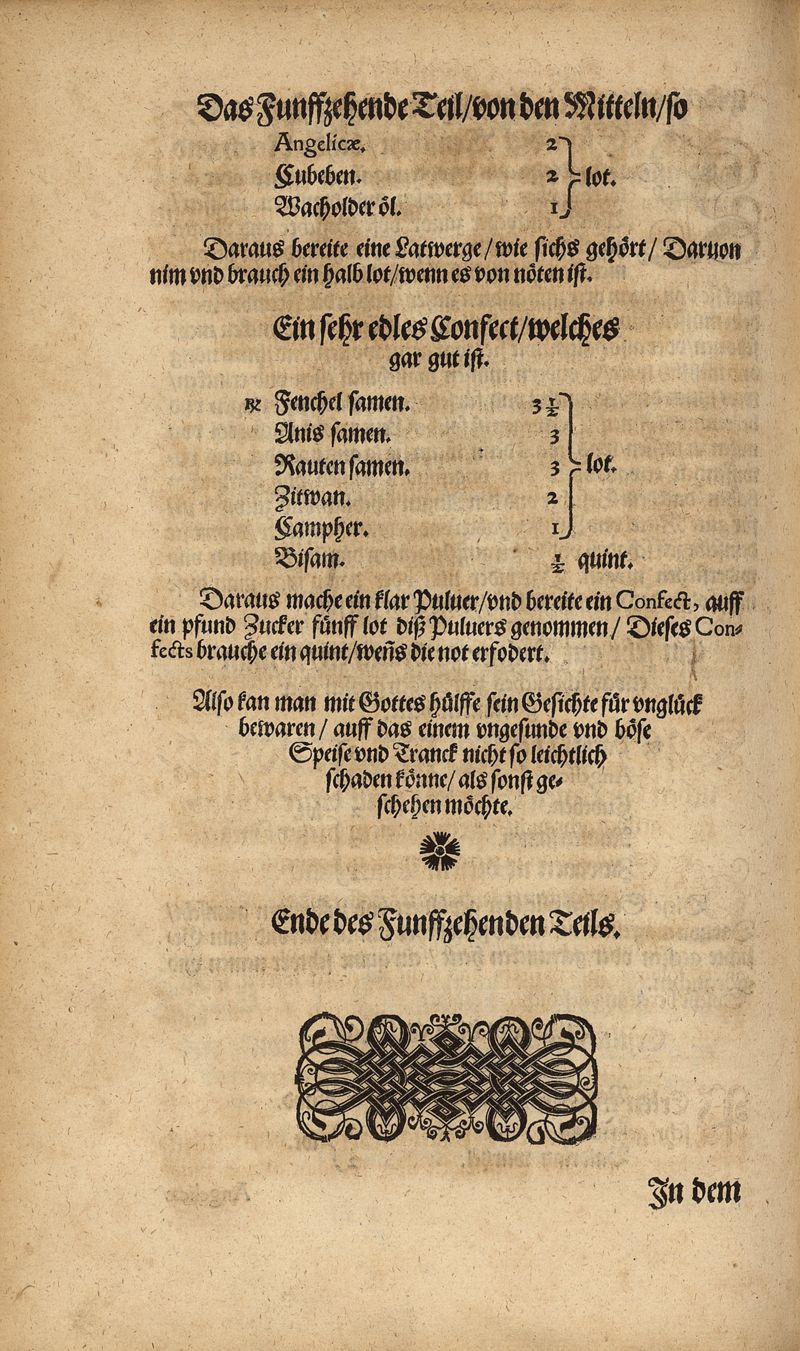 Das Funffzehende Teil/von den Mitteln/so
Angelicæ. 2
Cubeben. 2 lot.
Wacholder öl. 1
Daraus bereite eine Latwerge/wie sichs gehört/ Daruon
nim vnd brauch ein halb lot/wenn es von nöten ist.
Ein sehr edles Confect/welches
gar gut ist.
℞ Fenchel samen. 3 ½
Anis samen. 3
Rauten samen. 3 lot.
Zitwan. 2
Campher. 1
Bisam. ½ quint.
Daraus mache ein klar Puluer/vnd bereite ein Confect, auff
ein pfund Zucker fünff lot diß Puluers genommen/ Dieses Con-
fects brauche ein quint/weñs die not erfodert.
Also kan man mit Gottes hülffe sein Gesichte für vnglück
bewaren/ auff das einem vngesunde vnd böse
Speise vnd Tranck nicht so leichtlich
schaden könne/ als sonst ge-
schehen möchte.
Ende des Funffzehenden Teils.
In dem